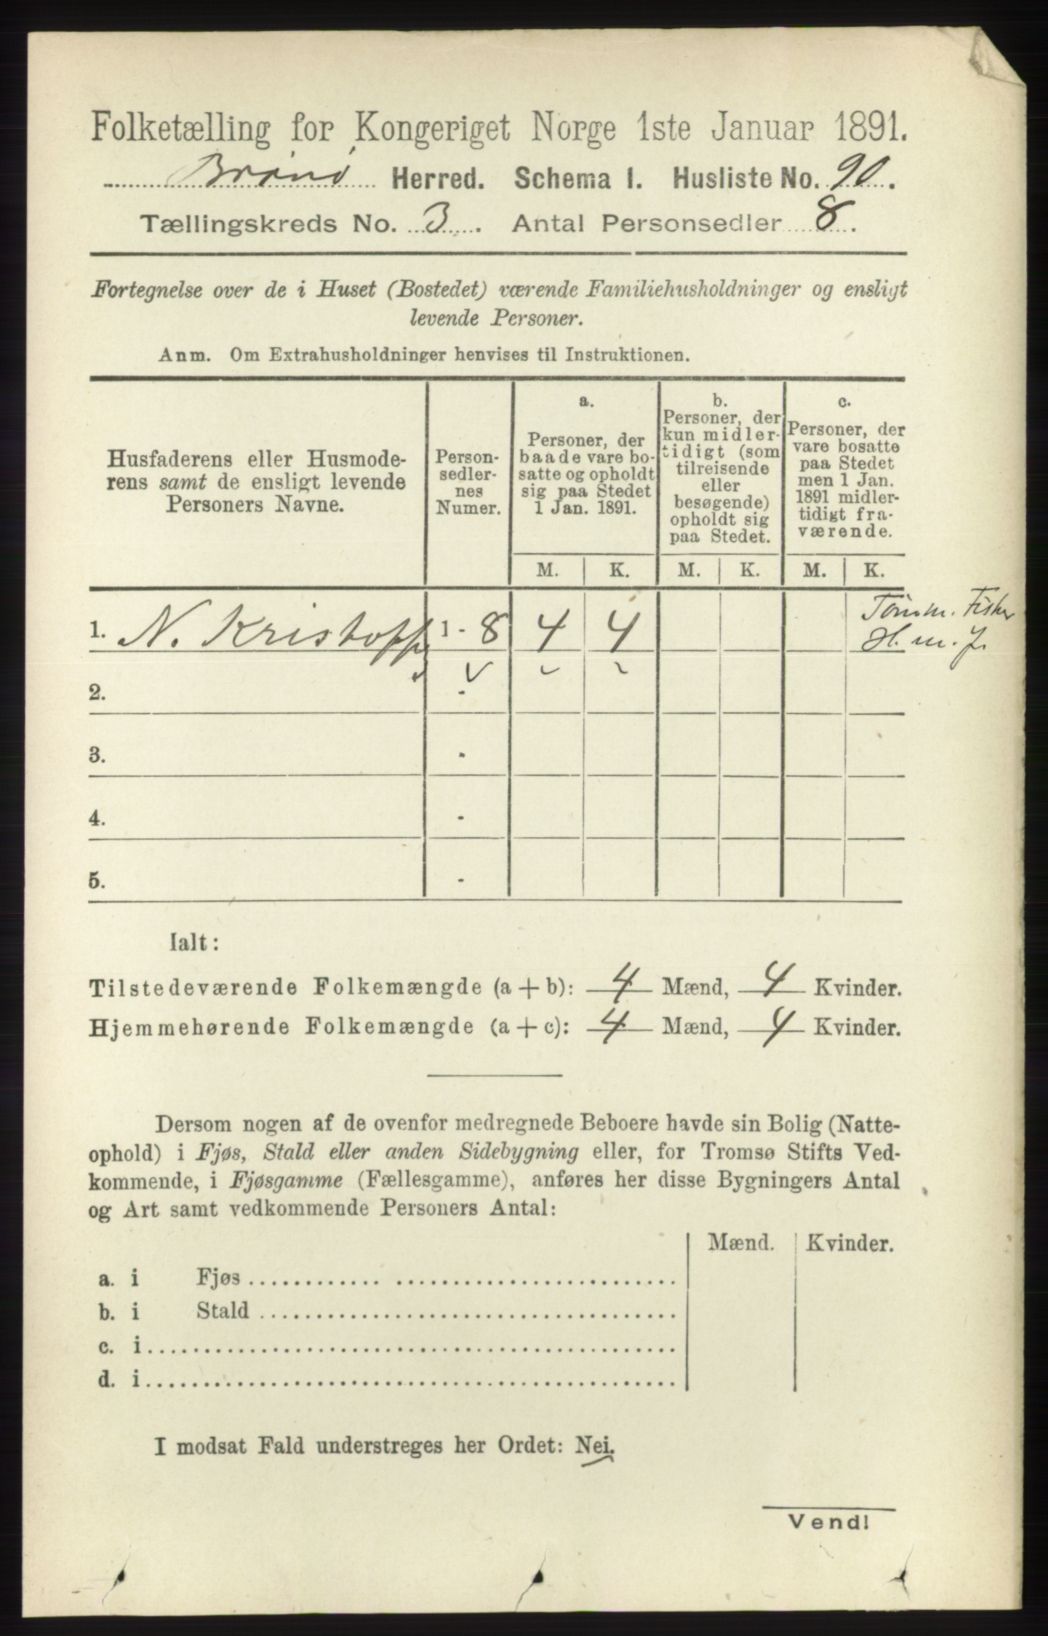 Folketælling for Kongeriget Norge 1ste Januar 1891.
Brønø Herred. Schema I. Husliste No. 90.
Tællingskreds No. 3. Antal Personsedler 8.
Fortegnelse over de i Huset (Bostedet) værende Familiehusholdninger og ensligt
levende Personer.
Anm. Om Extrahusholdninger henvises til Instruktionen.
Husfaderens eller Husmode-
rens samt de ensligt levende
Personers Navne.
Person-
sedler-
nes
Numer.
a.
Personer, der
baade vare bo-
satte og opholdt
sig paa Stedet
1 Jan. 1891.
b.
Personer, der
kun midler-
tidigt (som
tilreisende
eller
besøgende)
opholdt sig
paa Stedet.
c.
Personer, der
vare bosatte
paa Stedet
men 1 Jan.
1891 midler-
tidigt fra-
værende.
M. K. M. K. M. K.
1. N. Kristoff 1 - 8 4 4
Tömm. Fisker
H. m. J.
2. -
3. -
4. -
5. -
Ialt:
Tilstedeværende Folkemængde (a + b): 4 Mænd, 4 Kvinder.
Hjemmehørende Folkemængde (a + c): 4 Mænd, 4 Kvinder.
Dersom nogen af de ovenfor medregnede Beboere havde sin Bolig (Natte-
ophold) i Fjøs, Stald eller anden Sidebygning eller, for Tromsø Stifts Ved-
kommende, i Fjøsgamme (Fællesgamme), anføres her disse Bygningers Antal
og Art samt vedkommende Personers Antal:
Mænd. Kvinder.
a. i Fjøs
b. i Stald
c. i
d. i
I modsat Fald understreges her Ordet: Nei.
Vend!